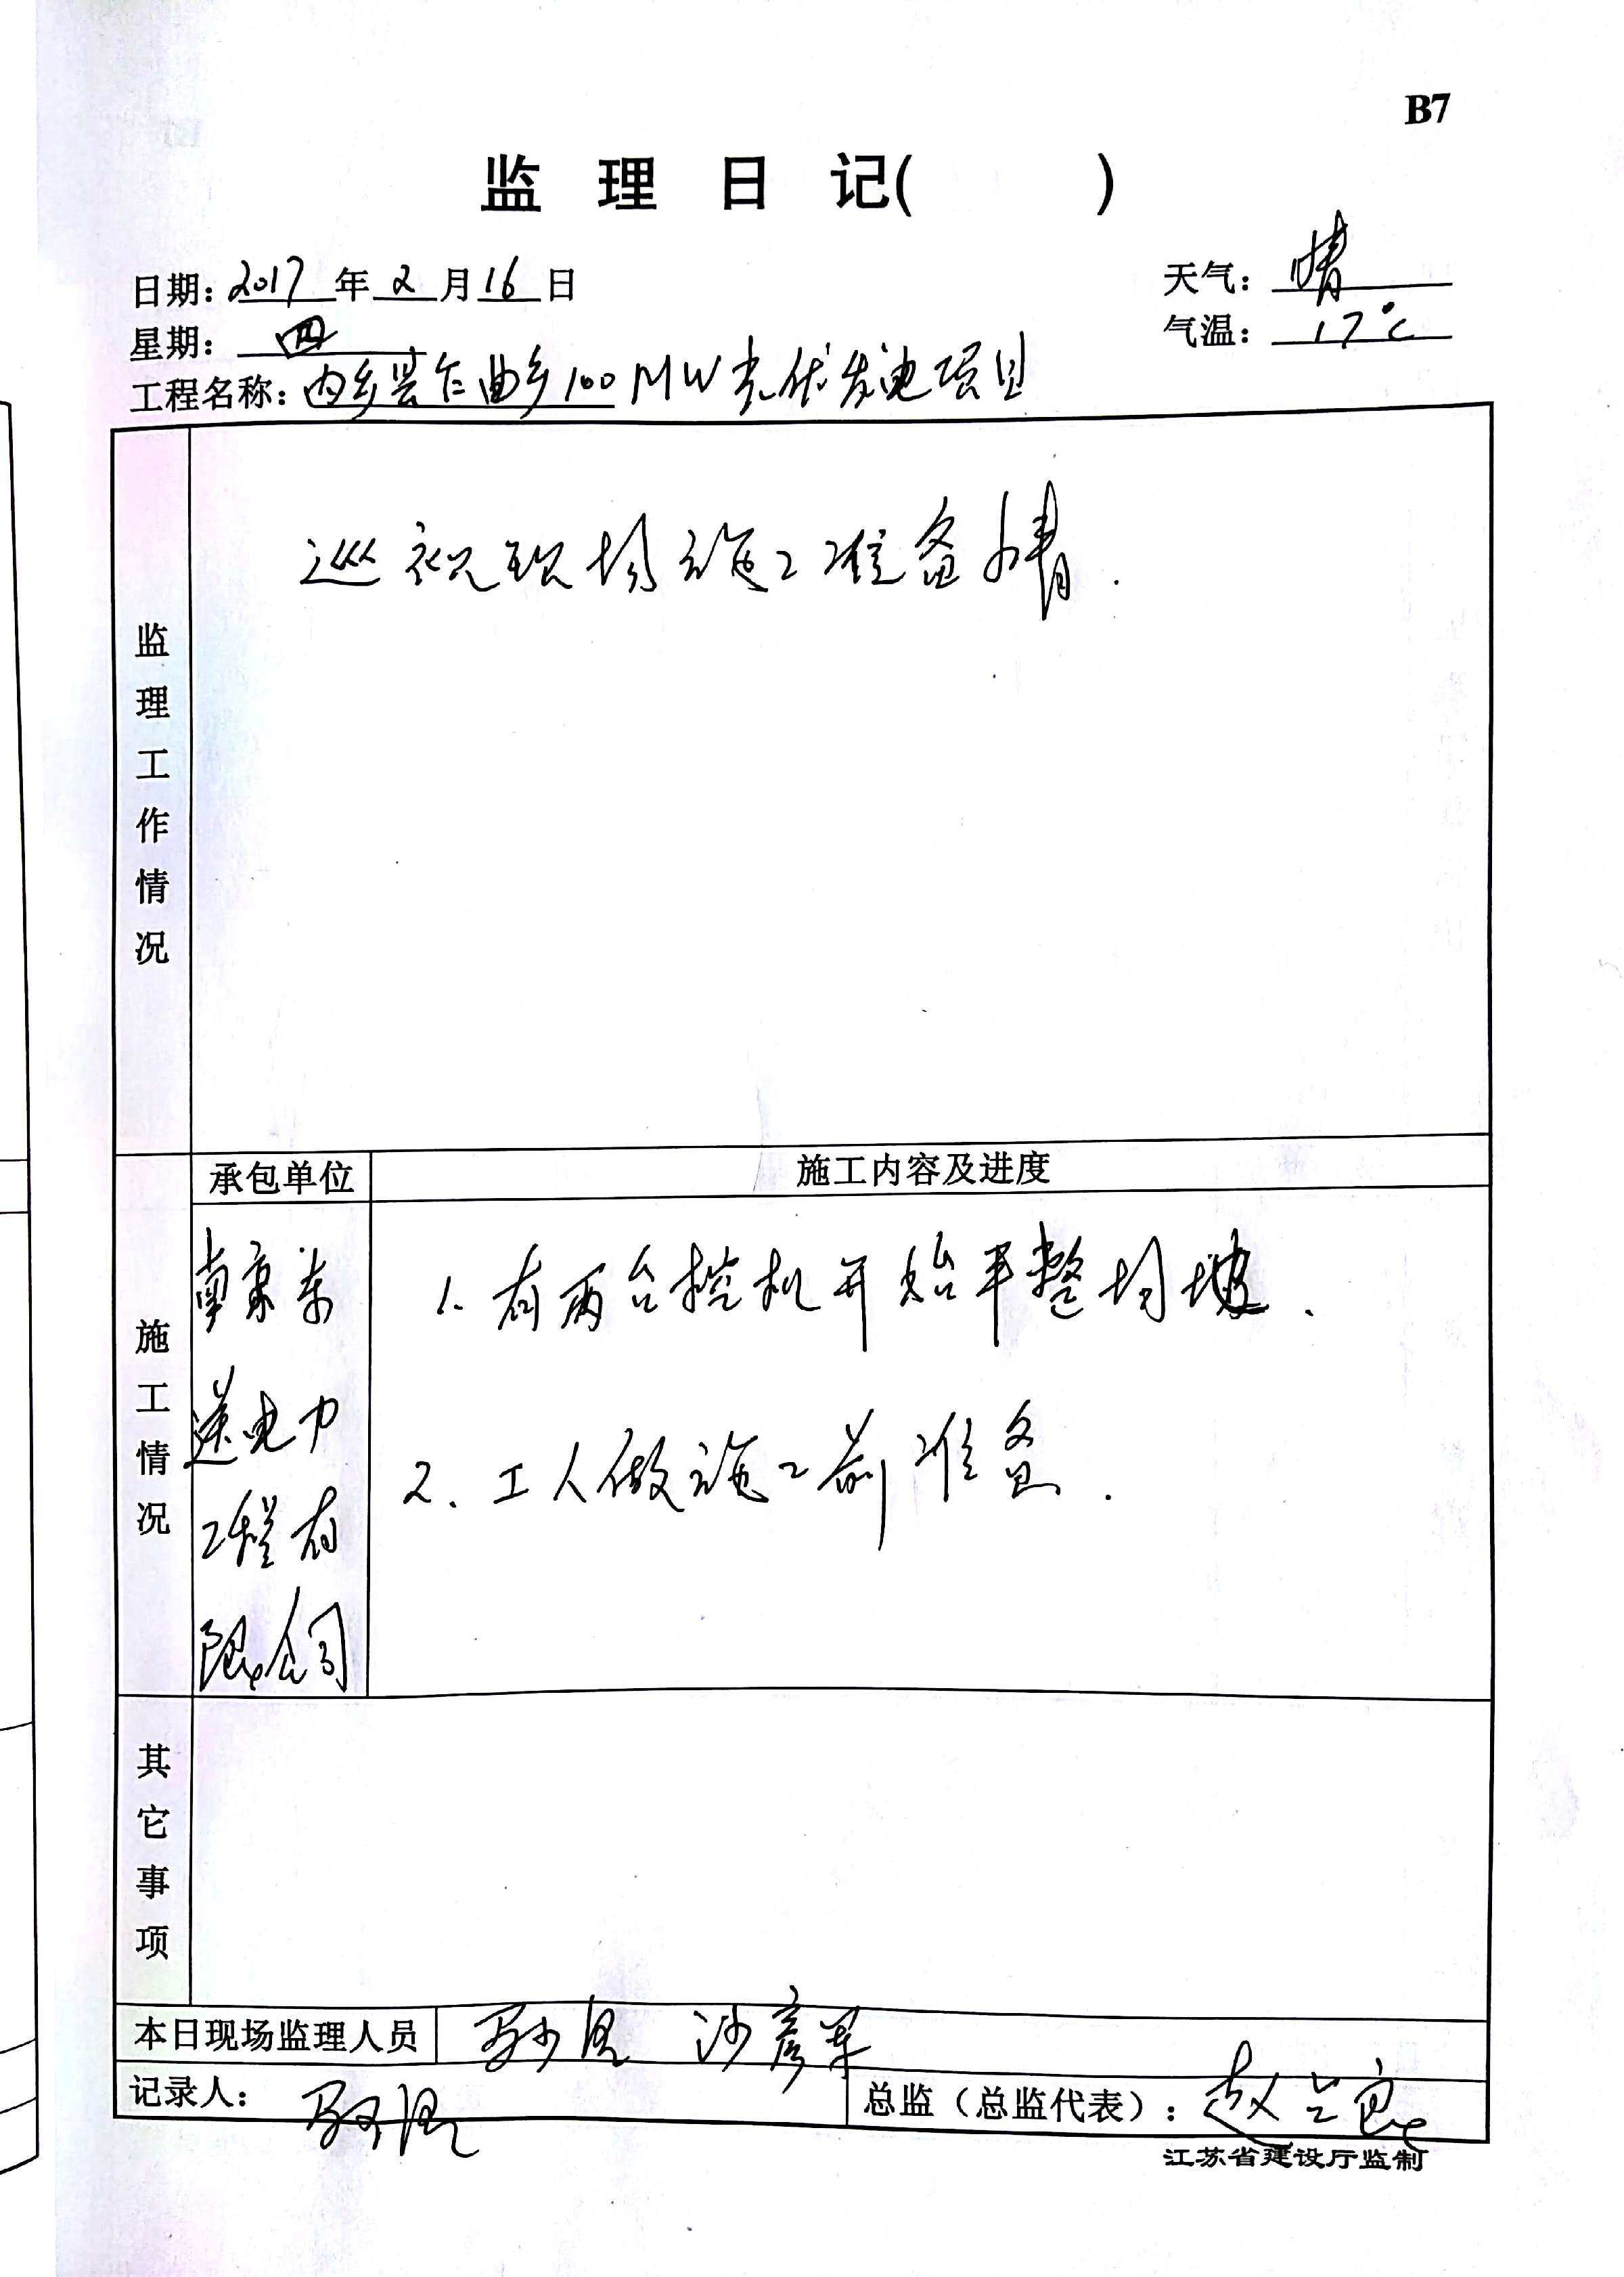 B7
监 理 日 记( )
日期: 2017 年 2 月 16 日
天气: 晴
星期: 四
气温: 17℃
工程名称: 内乡县乍曲乡100MW光伏发电项目
监理工作情况
巡视现场施工准备情.
施工情况
承包单位
施工内容及进度
南京苏
送电力
工程有
限公司
1. 有两台挖机开始平整场地.
2. 工人做施工前准备.
其它事项
本日现场监理人员
沙彦军
记录人:
总监(总监代表): 赵
江苏省建设厅监制